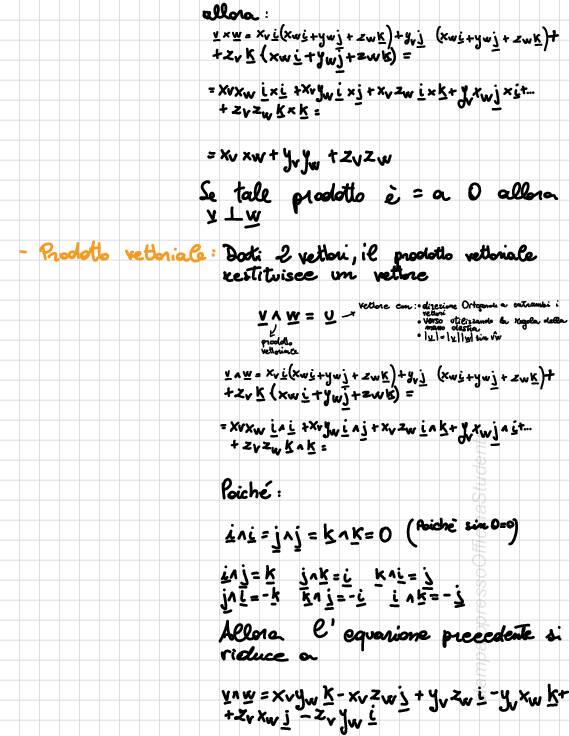 allora:
v × w = xv i (xw i + yw j + zw k) + yv j (xw i + yw j + zw k) +
+ zv k (xw i + yw j + zw k) =
= xv xw i × i + xv yw i × j + xv zw i × k + yv xw j × i + ...
+ zv zw k × k =
= xv xw + yv yw + zv zw
Se tale prodotto è = a 0 allora
v ⊥ w
- Prodotto vettoriale: Dati 2 vettori, il prodotto vettoriale
restituisce un vettore
v ∧ w = u → vettore con: • direzione Ortogonale a entrambi i
vettori
• verso utilizzando la regola della
mano destra
• |u| = |v||w| sin vw
prodotto
vettoriale
v ∧ w = xv i (xw i + yw j + zw k) + yv j (xw i + yw j + zw k) +
+ zv k (xw i + yw j + zw k) =
= xv xw i ∧ i + xv yw i ∧ j + xv zw i ∧ k + yv xw j ∧ i + ...
+ zv zw k ∧ k =
Poiché:
i ∧ i = j ∧ j = k ∧ k = 0 (Poiché sin 0=0)
i ∧ j = k j ∧ k = i k ∧ i = j
j ∧ i = -k k ∧ j = -i i ∧ k = -j
Allora l'equazione precedente si
riduce a
v ∧ w = xv yw k - xv zw j + yv zw i - yv xw k +
+ zv xw j - zv yw i